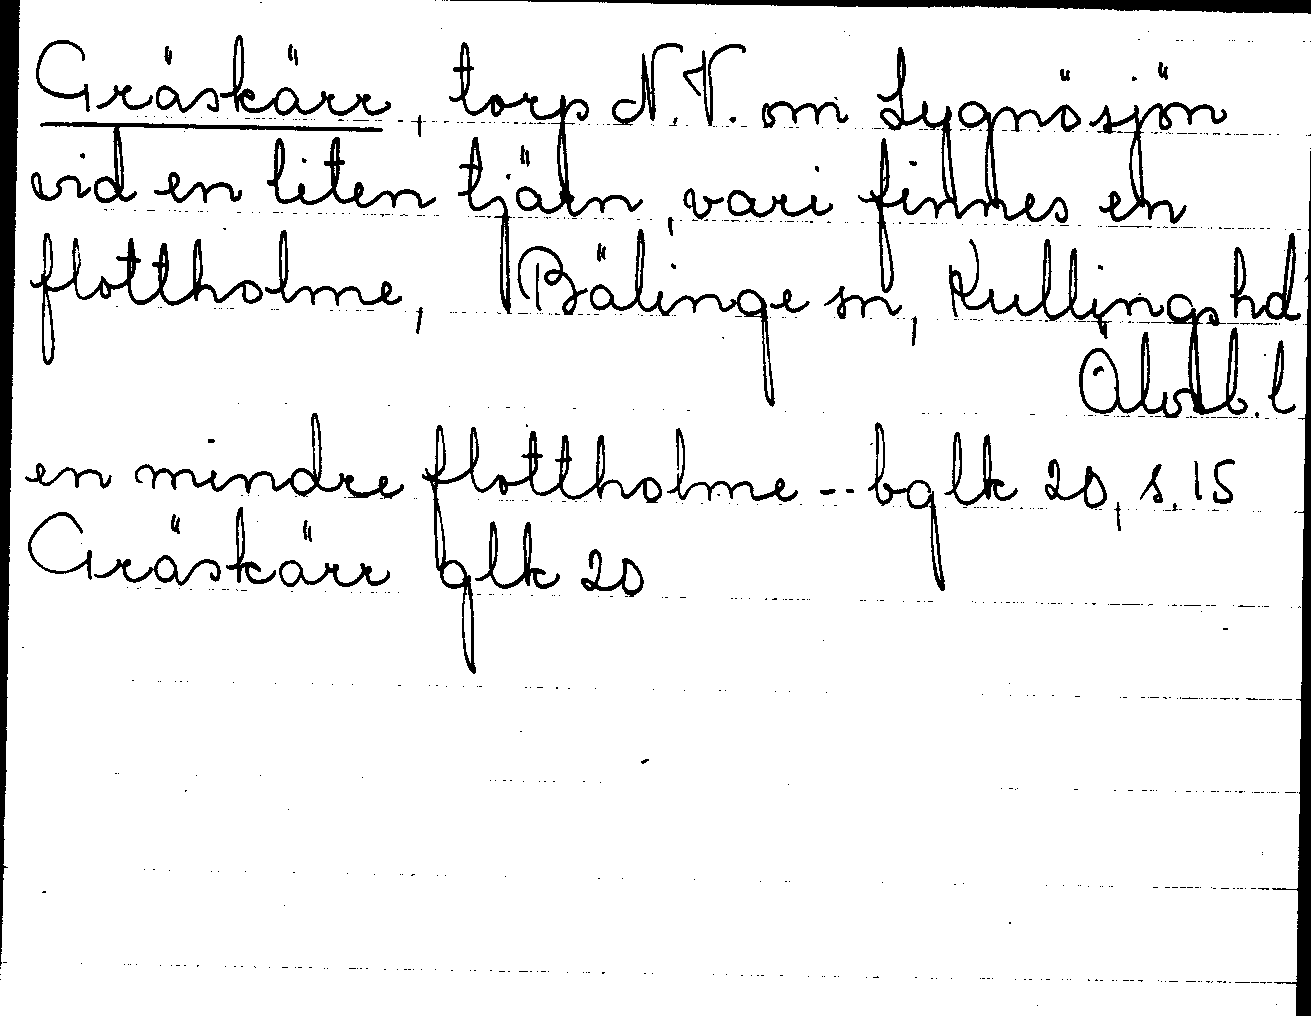 Gräskärr, torp N.V. om Lygnösjön
vid en liten tjärn, vari finnes en
flottholme, Bälinge sn, Kullings hd
Älvsb. l
en mindre flottholme -- bglk 20, s. 15
Gräskärr glk 20